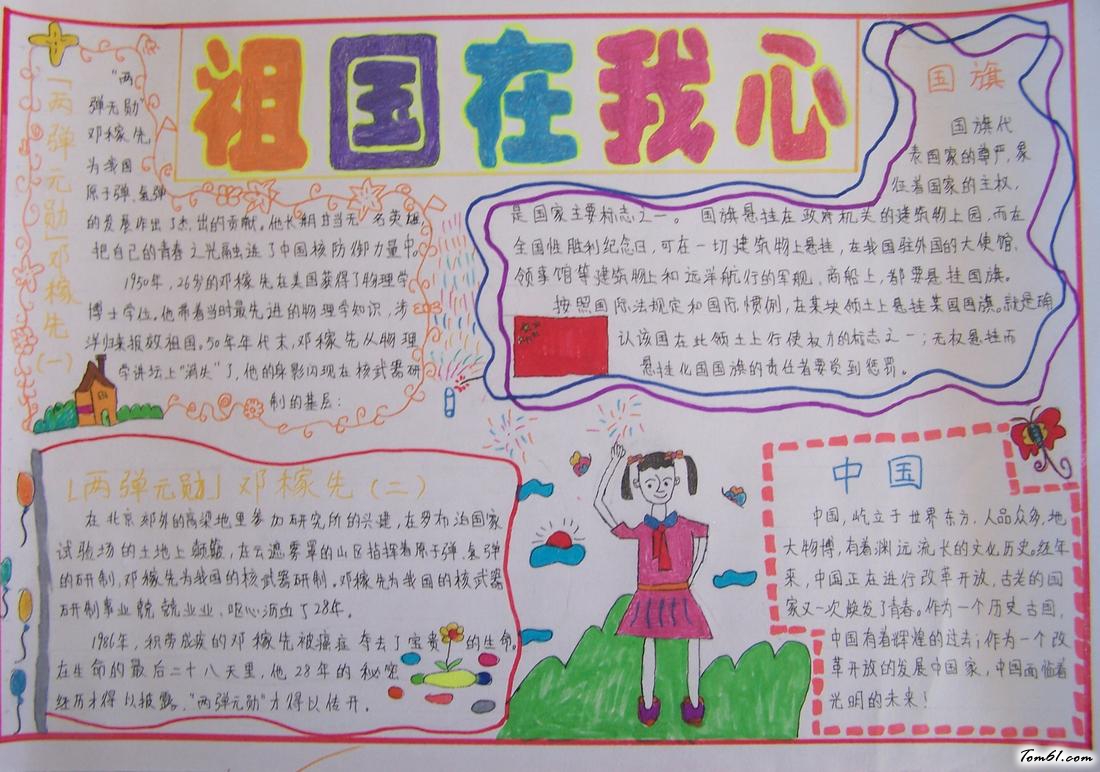 祖国在我心
「两弹元勋」邓稼先(一)
"两
弹元勋"
邓稼先
为我国
原子弹、氢弹
的发展作出了杰出的贡献。他长期担当无名英雄
把自己的青春之光融进了中国核防御力量中。
1950年,26岁的邓稼先在美国获得了物理学
博士学位。他带着当时最先进的物理学知识,涉
洋归来报效祖国。50年年代末,邓稼先从物理
学讲坛上"消失"了,他的身影闪现在核武器研
制的基层:
国旗
国旗代
表国家的尊严,象
征着国家的主权,
是国家主要标志之一。国旗悬挂在政府机关的建筑物上园,而在
全国性胜利纪念日,可在一切建筑物上悬挂,在我国驻外国的大使馆、
领事馆等建筑物上和远洋航行的军舰、商船上,都要悬挂国旗。
按照国际法规定和国际惯例,在某块领土上悬挂某国国旗。就是确
认该国在此领土上行使权力的标志之一;无权悬挂而
悬挂化国国旗的责任者要受到惩罚。
「两弹元勋」邓稼先(二)
在北京郊外的高粱地里参加研究所的兴建,在罗布泊国家
试验场的土地上颠簸,在云遮雾罩的山区指挥着原子弹、氢弹
的研制,邓稼先为我国的核武器研制,邓稼先为我国的核武器
研制事业兢兢业业、呕心沥血了28年。
1986年,积劳成疾的邓稼先被癌症夺去了宝贵的生命。
在生命的最后二十八天里,他28年的秘密
经历才得以披露。"两弹元勋"才得以传开。
中国
中国,屹立于世界东方,人品众多,地
大物博,有着渊远流长的文化历史。经年
来,中国正在进行改革开放,古老的国
家又一次焕发了青春。作为一个历史古国,
中国有着辉煌的过去;作为一个改
革开放的发展中国家,中国面临着
光明的未来!
Tom61.com